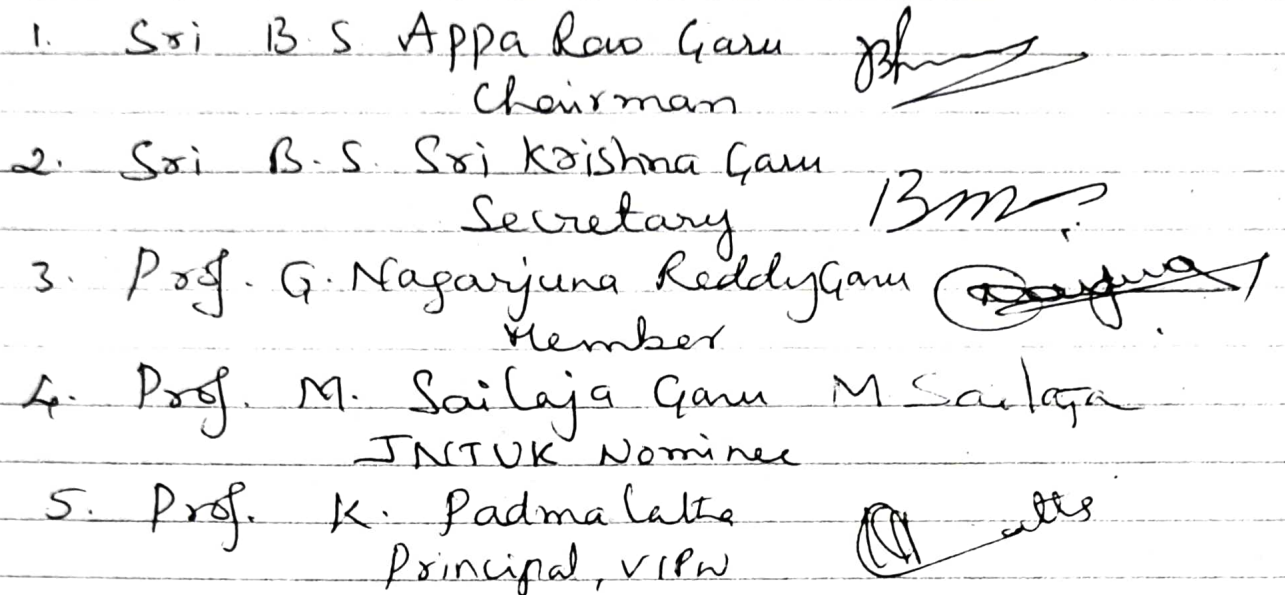 1. Sri B S Appa Rao Garu
Chairman
2. Sri B.S. Sri Krishna Garu
Secretary
3. Prof. G. Nagarjuna Reddy Garu
Member
4. Prof. M. Sailaja Garu M Sailaja
JNTUK Nominee
5. Prof. K. Padma Latha
Principal, VIPW